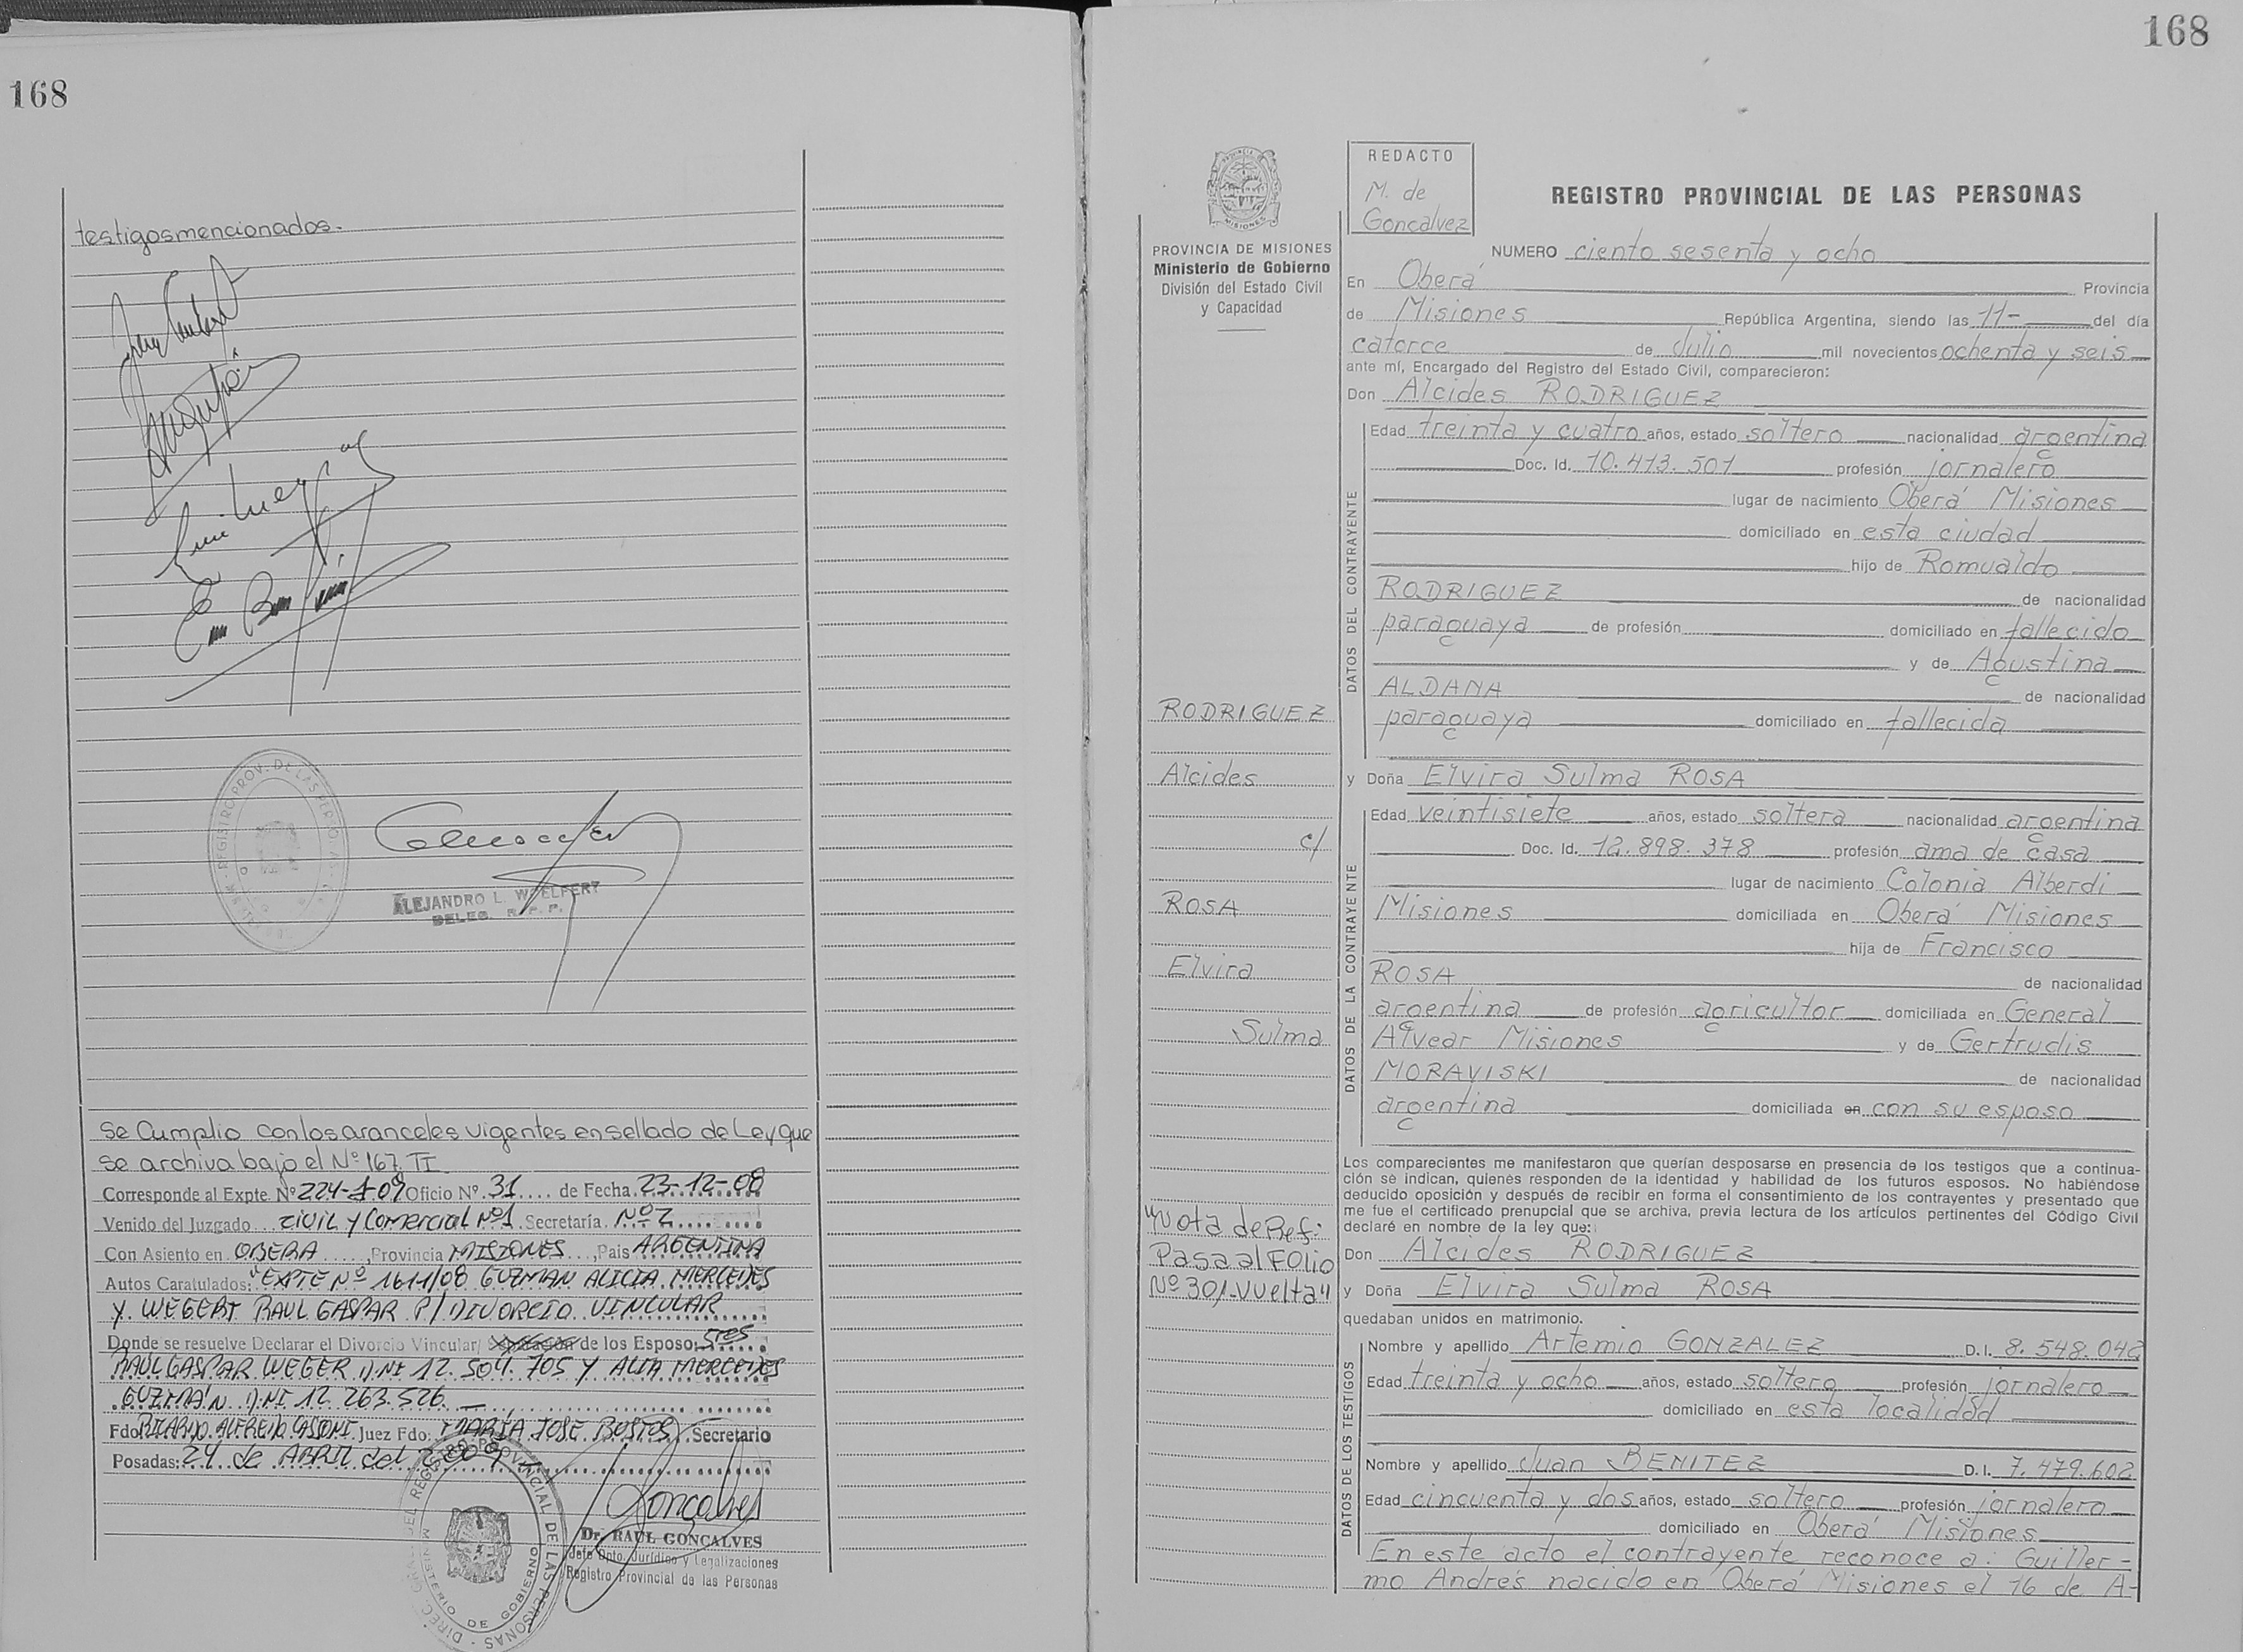 168
testigos mencionados.-
REGISTRO PROV. DE LAS PERSONAS
ALEJANDRO L. WOELFERT
DELEG. R. P. P.
Se Cumplio con los aranceles vigentes en sellado de Ley que
se archiva bajo el Nº 167. TI
Corresponde al Expte. Nº 224-J-09 Oficio Nº 31 .... de Fecha 23-12-08
Venido del Juzgado ... CIVIL Y COMERCIAL Nº1. Secretaría. Nº 2
Con Asiento en OBERA ....., Provincia MISIONES ..., Pais ARGENTINA
Autos Caratulados: "EXPTE Nº 1611/08 GUZMAN ALICIA MERCEDES
Y. WEGERT RAUL GASPAR P/ DIVORCIO VINCULAR
Donde se resuelve Declarar el Divorcio Vincular/ Separación de los Esposo: Sres
RAUL GASPAR WEGER D.NI 12.504.705 Y ALIA MERCEDES
GUZMÁN D.NI 12.263.526.-
Fdo RICARDO ALFREDO CASSONI. Juez Fdo: MARÍA JOSE BUSTOS. Secretario
Posadas: 24 de ABRIL del 2009
Dr. RAUL GONÇALVES
Jefe Dpto. Jurídico y Legalizaciones
Registro Provincial de las Personas
DIREC. GRAL. DEL REGISTRO PROVINCIAL DE LAS PERSONAS
MINISTERIO DE GOBIERNO
168
PROVINCIA DE MISIONES
Ministerio de Gobierno
División del Estado Civil
y Capacidad
RODRIGUEZ
Alcides
c/
ROSA
Elvira
Sulma
"Nota de Ref:
Pasa al Folio
Nº 301-Vuelta"
REDACTO
M. de
Goncalvez
REGISTRO PROVINCIAL DE LAS PERSONAS
NUMERO ciento sesenta y ocho
En Oberá Provincia
de Misiones República Argentina, siendo las 11- del día
catorce de Julio mil novecientos ochenta y seis
ante mí, Encargado del Registro del Estado Civil, comparecieron:
Don Alcides RODRIGUEZ
DATOS DEL CONTRAYENTE
Edad treinta y cuatro años, estado soltero nacionalidad argentina
Doc. Id. 10.413.501 profesión jornalero
lugar de nacimiento Oberá Misiones
domiciliado en esta ciudad
hijo de Romualdo
RODRIGUEZ de nacionalidad
paraguaya de profesión domiciliado en fallecido
y de Agustina
ALDANA de nacionalidad
paraguaya domiciliado en fallecida
y Doña Elvira Sulma ROSA
DATOS DE LA CONTRAYENTE
Edad veintisiete años, estado soltera nacionalidad argentina
Doc. Id. 12.898.378 profesión ama de casa
lugar de nacimiento Colonia Alberdi
Misiones domiciliada en Oberá Misiones
hija de Francisco
ROSA de nacionalidad
argentina de profesión agricultor domiciliada en General
Alvear Misiones y de Gertrudis
MORAVISKI de nacionalidad
argentina domiciliada en con su esposo
Los comparecientes me manifestaron que querían desposarse en presencia de los testigos que a continua-
ción se indican, quienes responden de la identidad y habilidad de los futuros esposos. No habiéndose
deducido oposición y después de recibir en forma el consentimiento de los contrayentes y presentado que
me fue el certificado prenupcial que se archiva, previa lectura de los artículos pertinentes del Código Civil
declaré en nombre de la ley que:
Don Alcides RODRIGUEZ
y Doña Elvira Sulma ROSA
quedaban unidos en matrimonio.
DATOS DE LOS TESTIGOS
Nombre y apellido Artemio GONZALEZ D.I. 8.548.042
Edad treinta y ocho años, estado soltero profesión jornalero
domiciliado en esta localidad
Nombre y apellido Juan BENITEZ D.I. 7.479.602
Edad cincuenta y dos años, estado soltero profesión jornalero
domiciliado en Oberá Misiones
En este acto el contrayente reconoce a: Guiller-
mo Andrés nacido en Oberá Misiones el 16 de A-